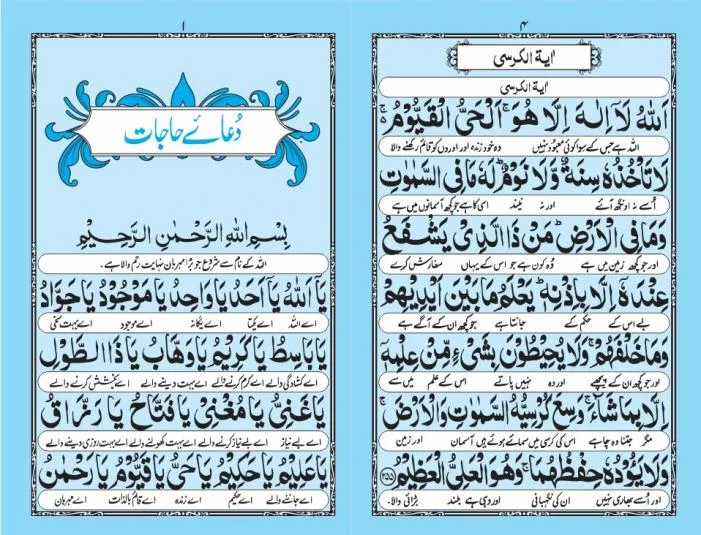 ۱
دُعائے حاجات
بِسْمِ اللهِ الرَّحْمٰنِ الرَّحِيْمِ
اللہ کے نام سے شروع جو بڑا مہربان نہایت رحم والا ہے۔
يَا اَللهُ يَا اَحَدُ يَا وَاحِدُ يَا مَوْجُوْدُ يَا جَوَادُ
اے اللہ اے یکتا اے یگانہ اے موجود اے بہت سخی
يَا بَاسِطُ يَا كَرِيْمُ يَا وَهَّابُ يَا ذَا الطَّوْلِ
اے کشادگی والے اے کرم کرنے والے اے بہت دینے والے اے بخشش کرنے والے
يَا غَنِيُّ يَا مُغْنِيْ يَا فَتَّاحُ يَا رَزَّاقُ
اے بے نیاز اے بے نیاز کرنے والے اے بہت کھولنے والے اے بہت روزی دینے والے
يَا عَلِيْمُ يَا حَكِيْمُ يَا حَيُّ يَا قَيُّوْمُ يَا رَحْمٰنُ
اے جاننے والے اے حکیم اے زندہ اے قائم بالذات اے مہربان
۴
اٰیة الکرسی
اٰیة الکرسی
اَللهُ لَآ اِلٰهَ اِلَّا هُوَ ۚ اَلْحَيُّ الْقَيُّوْمُ ۚ
اللہ ہے جس کے سوا کوئی معبود نہیں وہ خود زندہ اور اوروں کو قائم رکھنے والا
لَا تَاْخُذُهٗ سِنَةٌ وَّلَا نَوْمٌ ؕ لَهٗ مَا فِي السَّمٰوٰتِ
اُسے نہ اونگھ آئے اور نہ نیند اسی کا ہے جو کچھ آسمانوں میں ہے
وَمَا فِي الْاَرْضِ ؕ مَنْ ذَا الَّذِيْ يَشْفَعُ
اور جو کچھ زمین میں ہے وہ کون ہے جو اس کے یہاں سفارش کرے
عِنْدَهٗٓ اِلَّا بِاِذْنِهٖ ؕ يَعْلَمُ مَا بَيْنَ اَيْدِيْهِمْ
بے اس کے حکم کے جانتا ہے جو کچھ ان کے آگے ہے
وَمَا خَلْفَهُمْ ۚ وَلَا يُحِيْطُوْنَ بِشَيْءٍ مِّنْ عِلْمِهٖٓ
اور جو کچھ ان کے پیچھے اور وہ نہیں پاتے اس کے علم میں سے
اِلَّا بِمَا شَآءَ ۚ وَسِعَ كُرْسِيُّهُ السَّمٰوٰتِ وَالْاَرْضَ ۚ
مگر جتنا وہ چاہے اس کی کرسی میں سمائے ہوئے ہیں آسمان اور زمین
وَلَا يَـُٔوْدُهٗ حِفْظُهُمَا ۚ وَهُوَ الْعَلِيُّ الْعَظِيْمُ ﴿۲۵۵﴾
اور اُسے بھاری نہیں ان کی نگہبانی اور وہی ہے بلند بڑائی والا۔